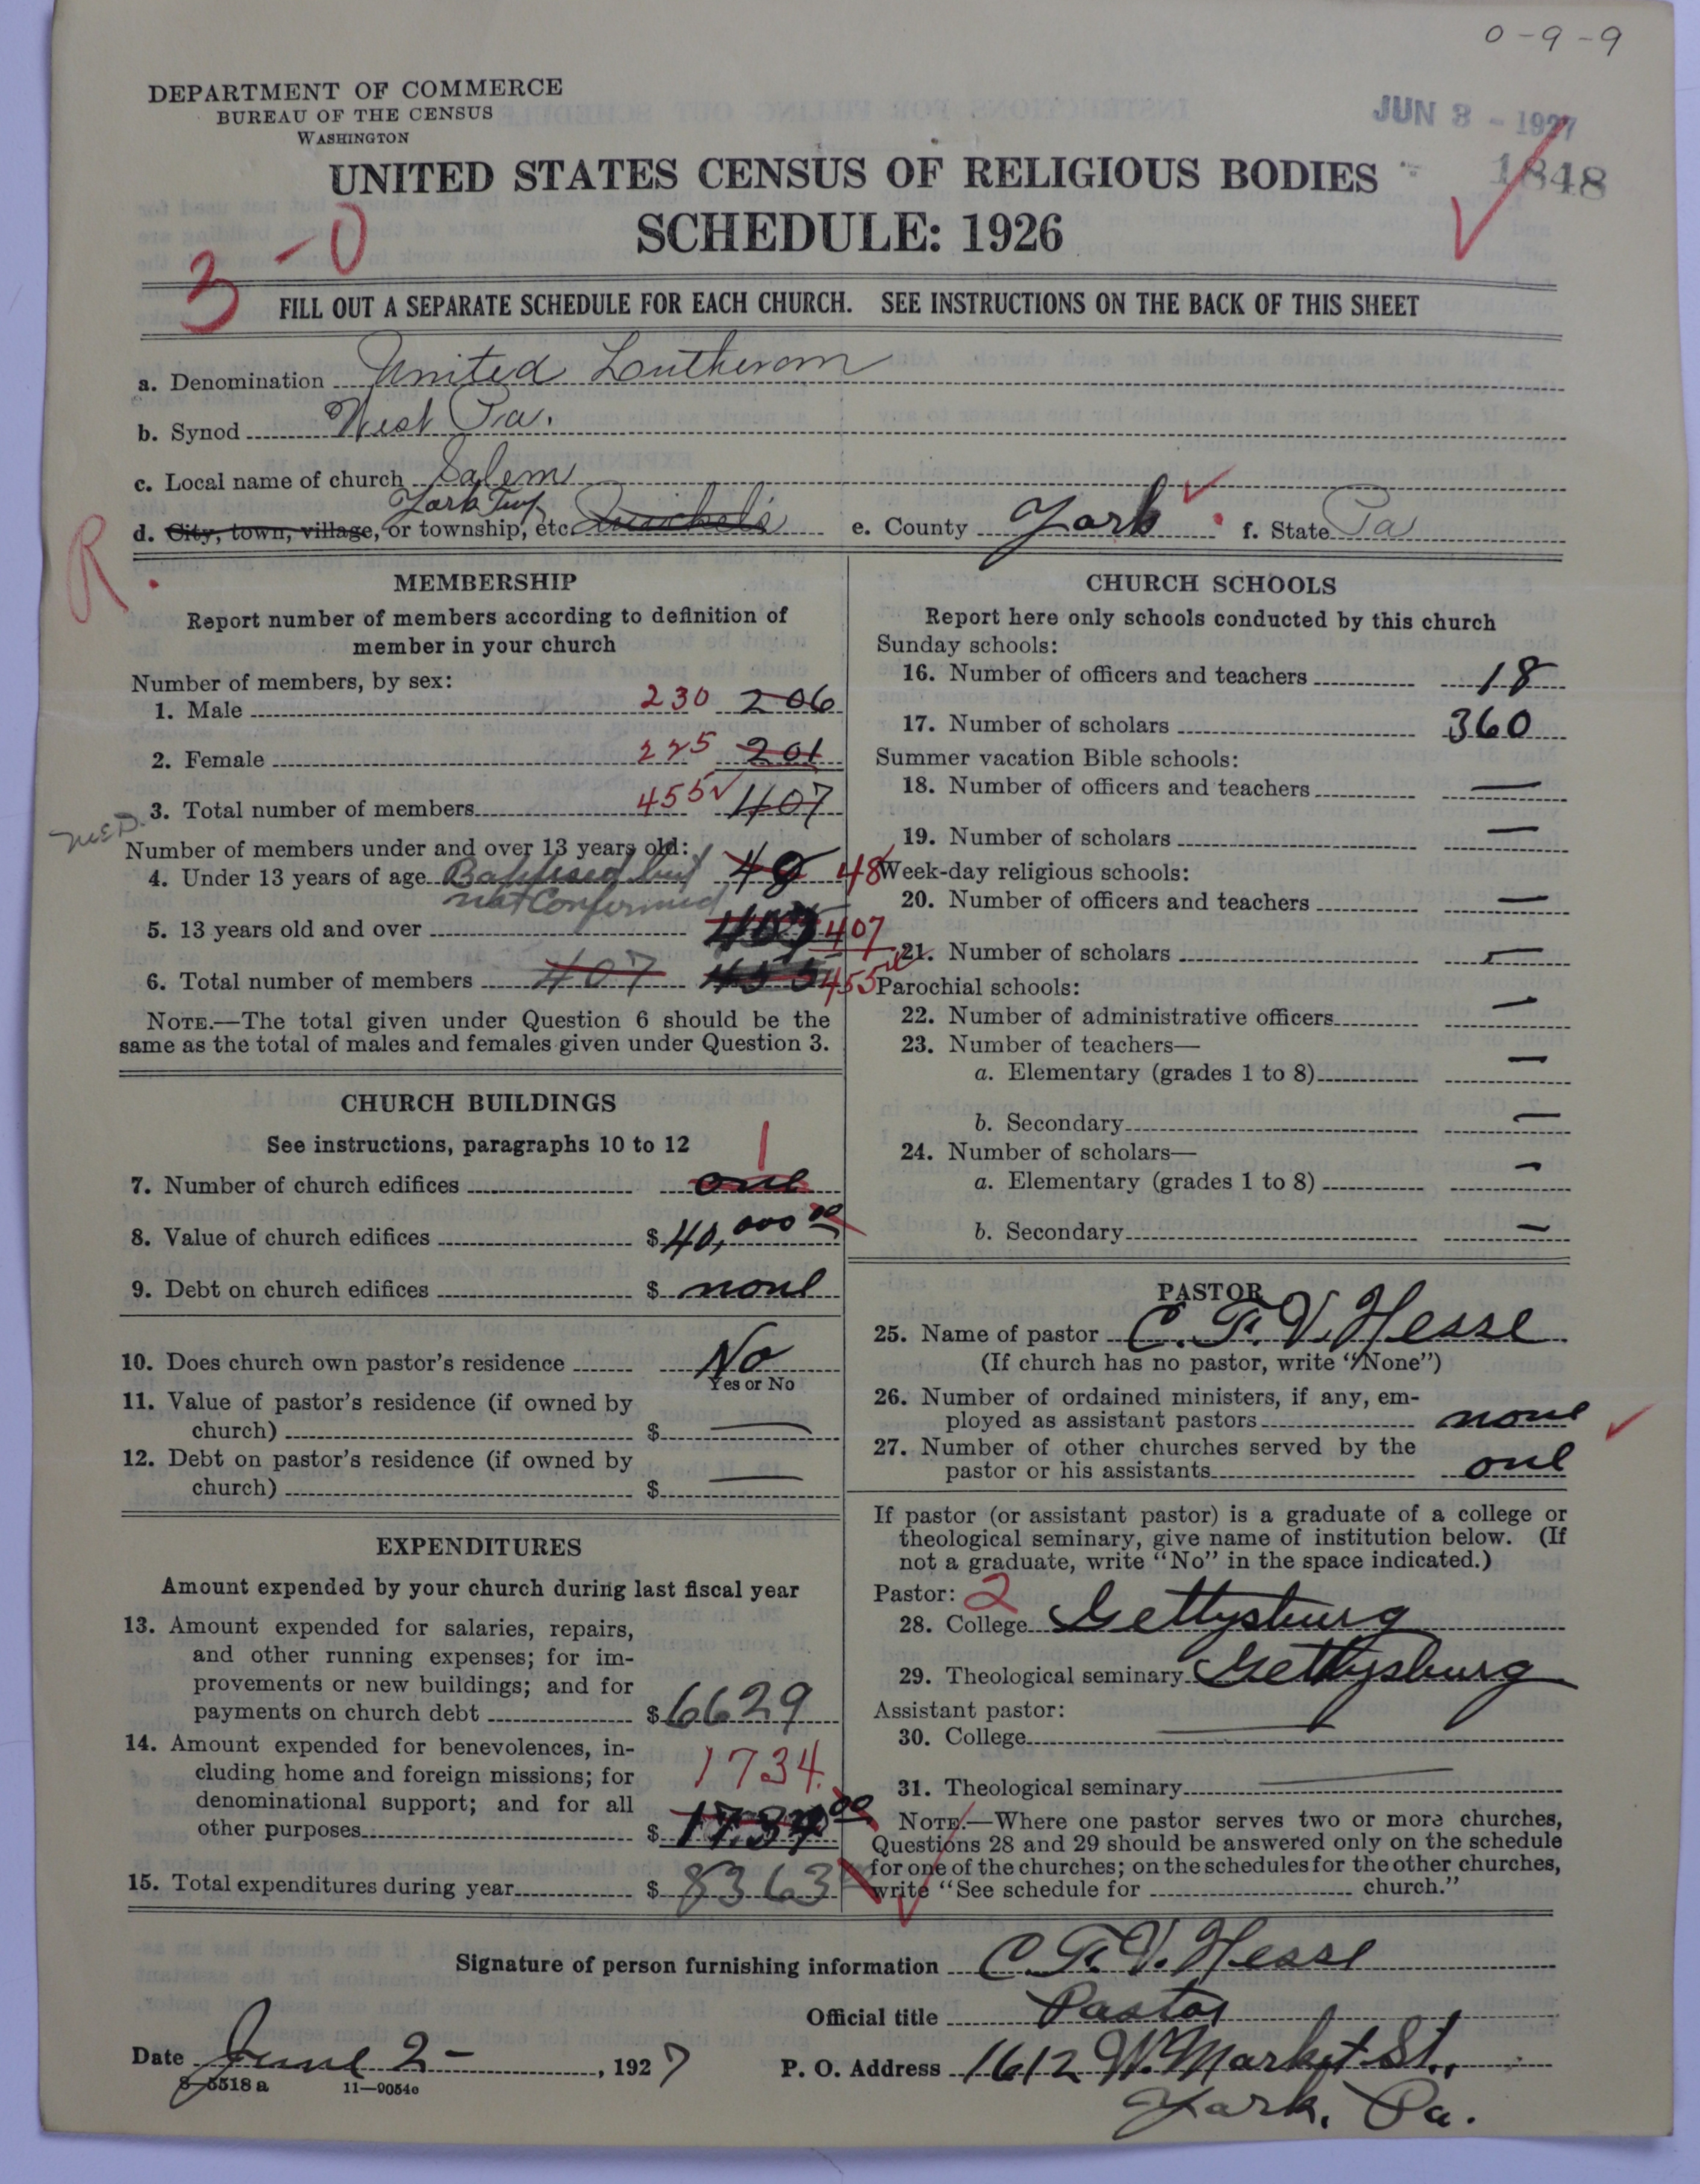 0-9-9
DEPARTMENT OF COMMERCE
BUREAU OF THE CENSUS
WASHINGTON
JUN 3 - 1927
1848
UNITED STATES CENSUS OF RELIGIOUS BODIES
SCHEDULE: 1926
3-0
FILL OUT A SEPARATE SCHEDULE FOR EACH CHURCH. SEE INSTRUCTIONS ON THE BACK OF THIS SHEET
a. Denomination United Lutheran
b. Synod West Pa.
c. Local name of church Salem
York Twp.
d. City, town, village, or township, etc. e. County York f. State Pa
R.
MEMBERSHIP
Report number of members according to definition of
member in your church
Number of members, by sex:
1. Male 230 206
2. Female 225 201
3. Total number of members 455 407
Number of members under and over 13 years old:
4. Under 13 years of age Baptised but 48 48
not Confirmed
5. 13 years old and over 407 407
6. Total number of members 407 455 455
NOTE.—The total given under Question 6 should be the
same as the total of males and females given under Question 3.
CHURCH BUILDINGS
See instructions, paragraphs 10 to 12
1
7. Number of church edifices one
8. Value of church edifices $40,000 00
9. Debt on church edifices $ none
10. Does church own pastor's residence No
Yes or No
11. Value of pastor's residence (if owned by
church) $ —
12. Debt on pastor's residence (if owned by
church) $ —
EXPENDITURES
Amount expended by your church during last fiscal year
13. Amount expended for salaries, repairs,
and other running expenses; for im-
provements or new buildings; and for
payments on church debt $6629
14. Amount expended for benevolences, in-
cluding home and foreign missions; for 1734.
denominational support; and for all
other purposes $ 1734 00
15. Total expenditures during year $ 8363
CHURCH SCHOOLS
Report here only schools conducted by this church
Sunday schools:
16. Number of officers and teachers 18
17. Number of scholars 360
Summer vacation Bible schools:
18. Number of officers and teachers —
19. Number of scholars —
Week-day religious schools:
20. Number of officers and teachers —
21. Number of scholars —
Parochial schools:
22. Number of administrative officers —
23. Number of teachers—
a. Elementary (grades 1 to 8) —
b. Secondary —
24. Number of scholars—
a. Elementary (grades 1 to 8) —
b. Secondary —
PASTOR
25. Name of pastor C. F. V. Hesse
(If church has no pastor, write "None")
26. Number of ordained ministers, if any, em-
ployed as assistant pastors none
27. Number of other churches served by the
pastor or his assistants one
If pastor (or assistant pastor) is a graduate of a college or
theological seminary, give name of institution below. (If
not a graduate, write "No" in the space indicated.)
Pastor: 2
28. College Gettysburg
29. Theological seminary Gettysburg
Assistant pastor:
30. College —
31. Theological seminary —
NOTE.—Where one pastor serves two or more churches,
Questions 28 and 29 should be answered only on the schedule
for one of the churches; on the schedules for the other churches,
write "See schedule for church."
Signature of person furnishing information C. F. V. Hesse
Official title Pastor
Date June 2-, 1927 P. O. Address 1612 W. Market St.,
York, Pa.
8-5518a 11—9054c